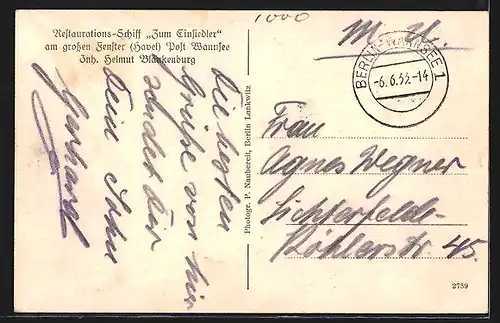 Restaurations-Schiff „Zum Einsiedler“
am großen Fenster (Havel) Post Wannsee
Inh. Helmut Blankenburg
1000
M. U.
BERLIN-WANNSEE 1
-6.6.39.-14
Die besten
Grüße von hier
sendet Dir
Dein Sohn
Gerhard
Photogr. P. Naubereit, Berlin Lankwitz
Frau
Agnes Wegner
Lichterfelde-
Köhlerstr. 45.
2739